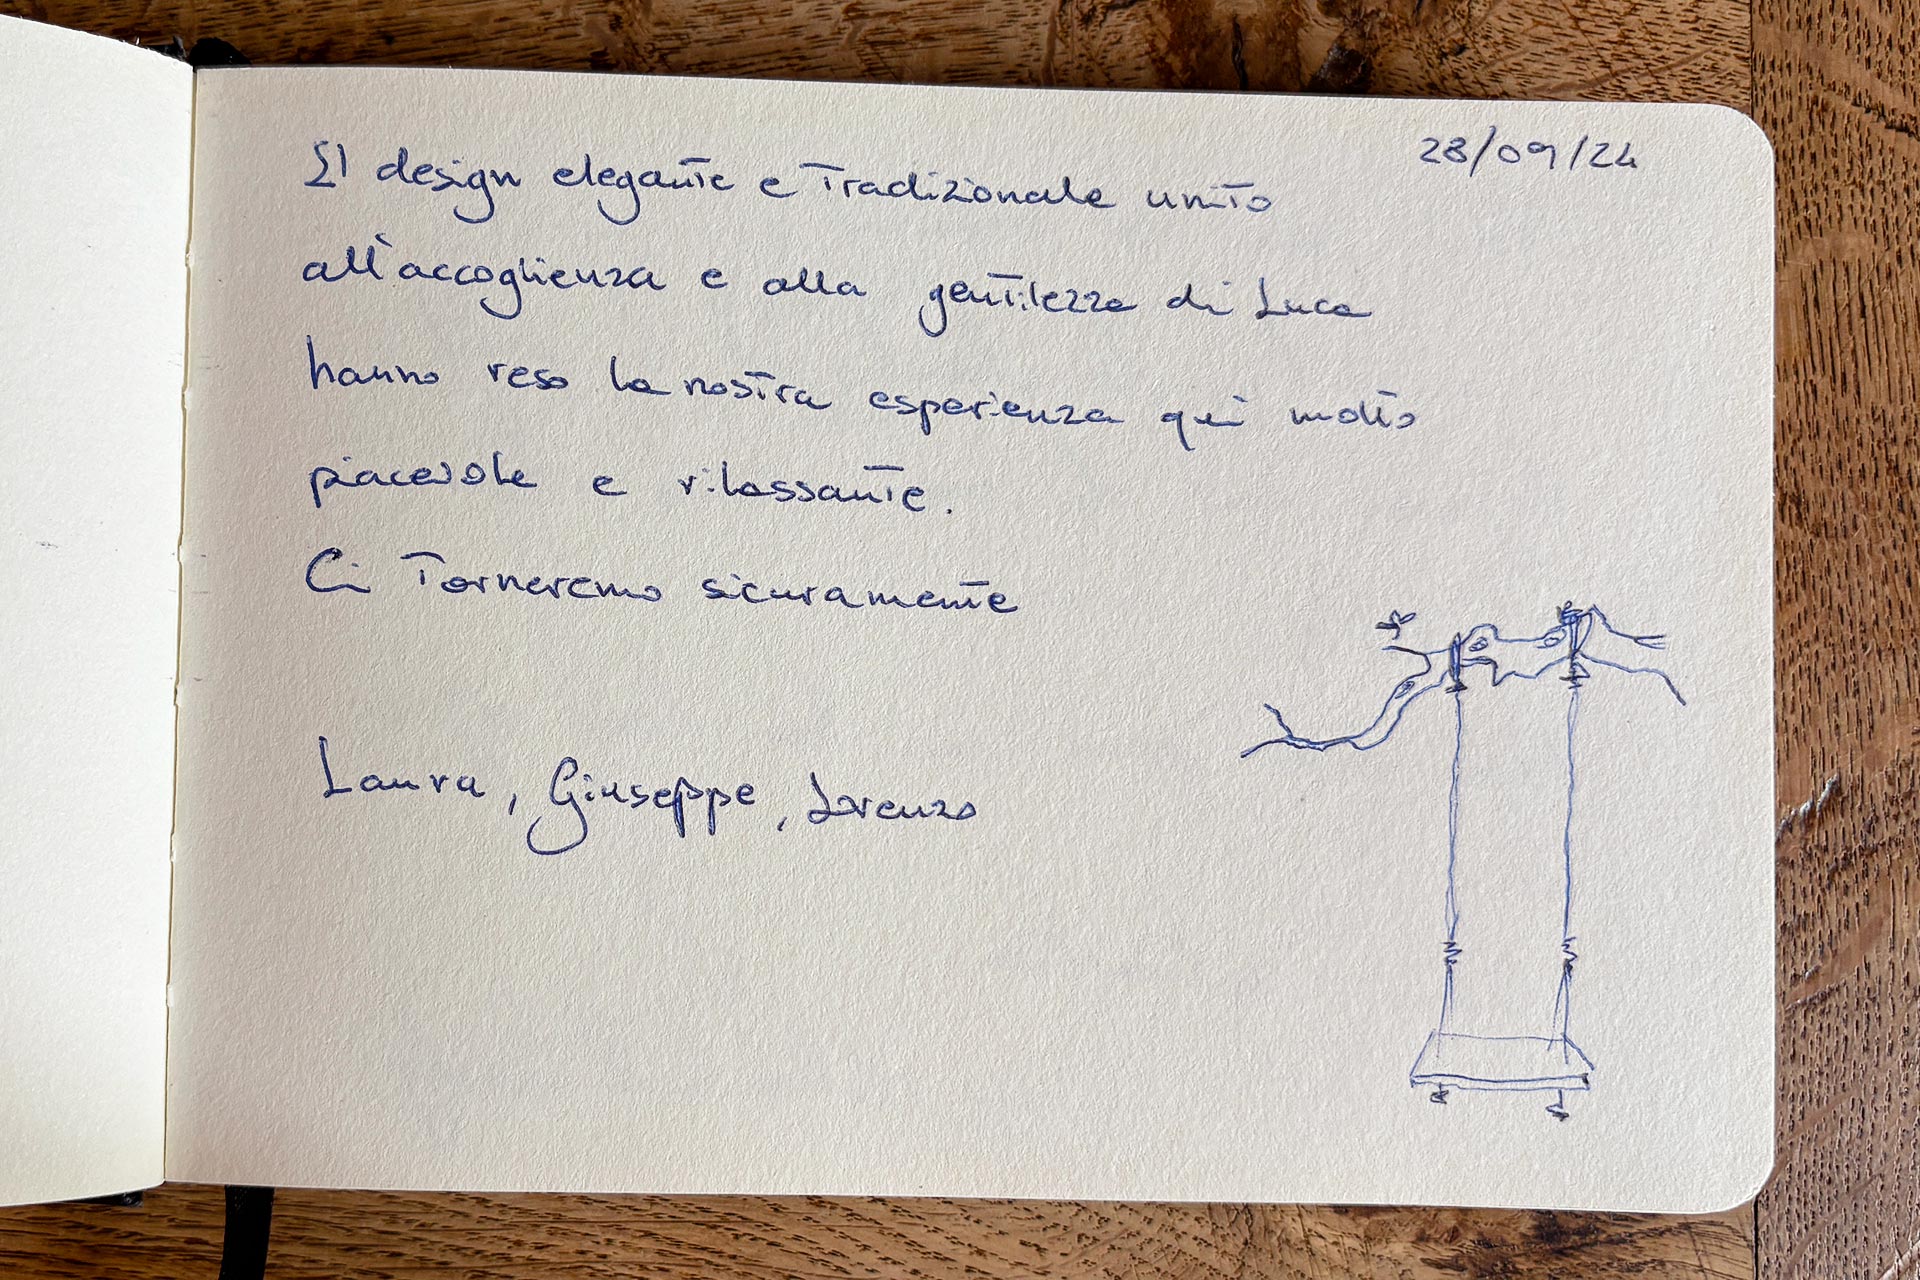 28/09/24
Il design elegante e tradizionale unito
all'accoglienza e alla gentilezza di Luca
hanno reso la nostra esperienza qui molto
piacevole e rilassante.
Ci torneremo sicuramente
Laura, Giuseppe, Lorenzo